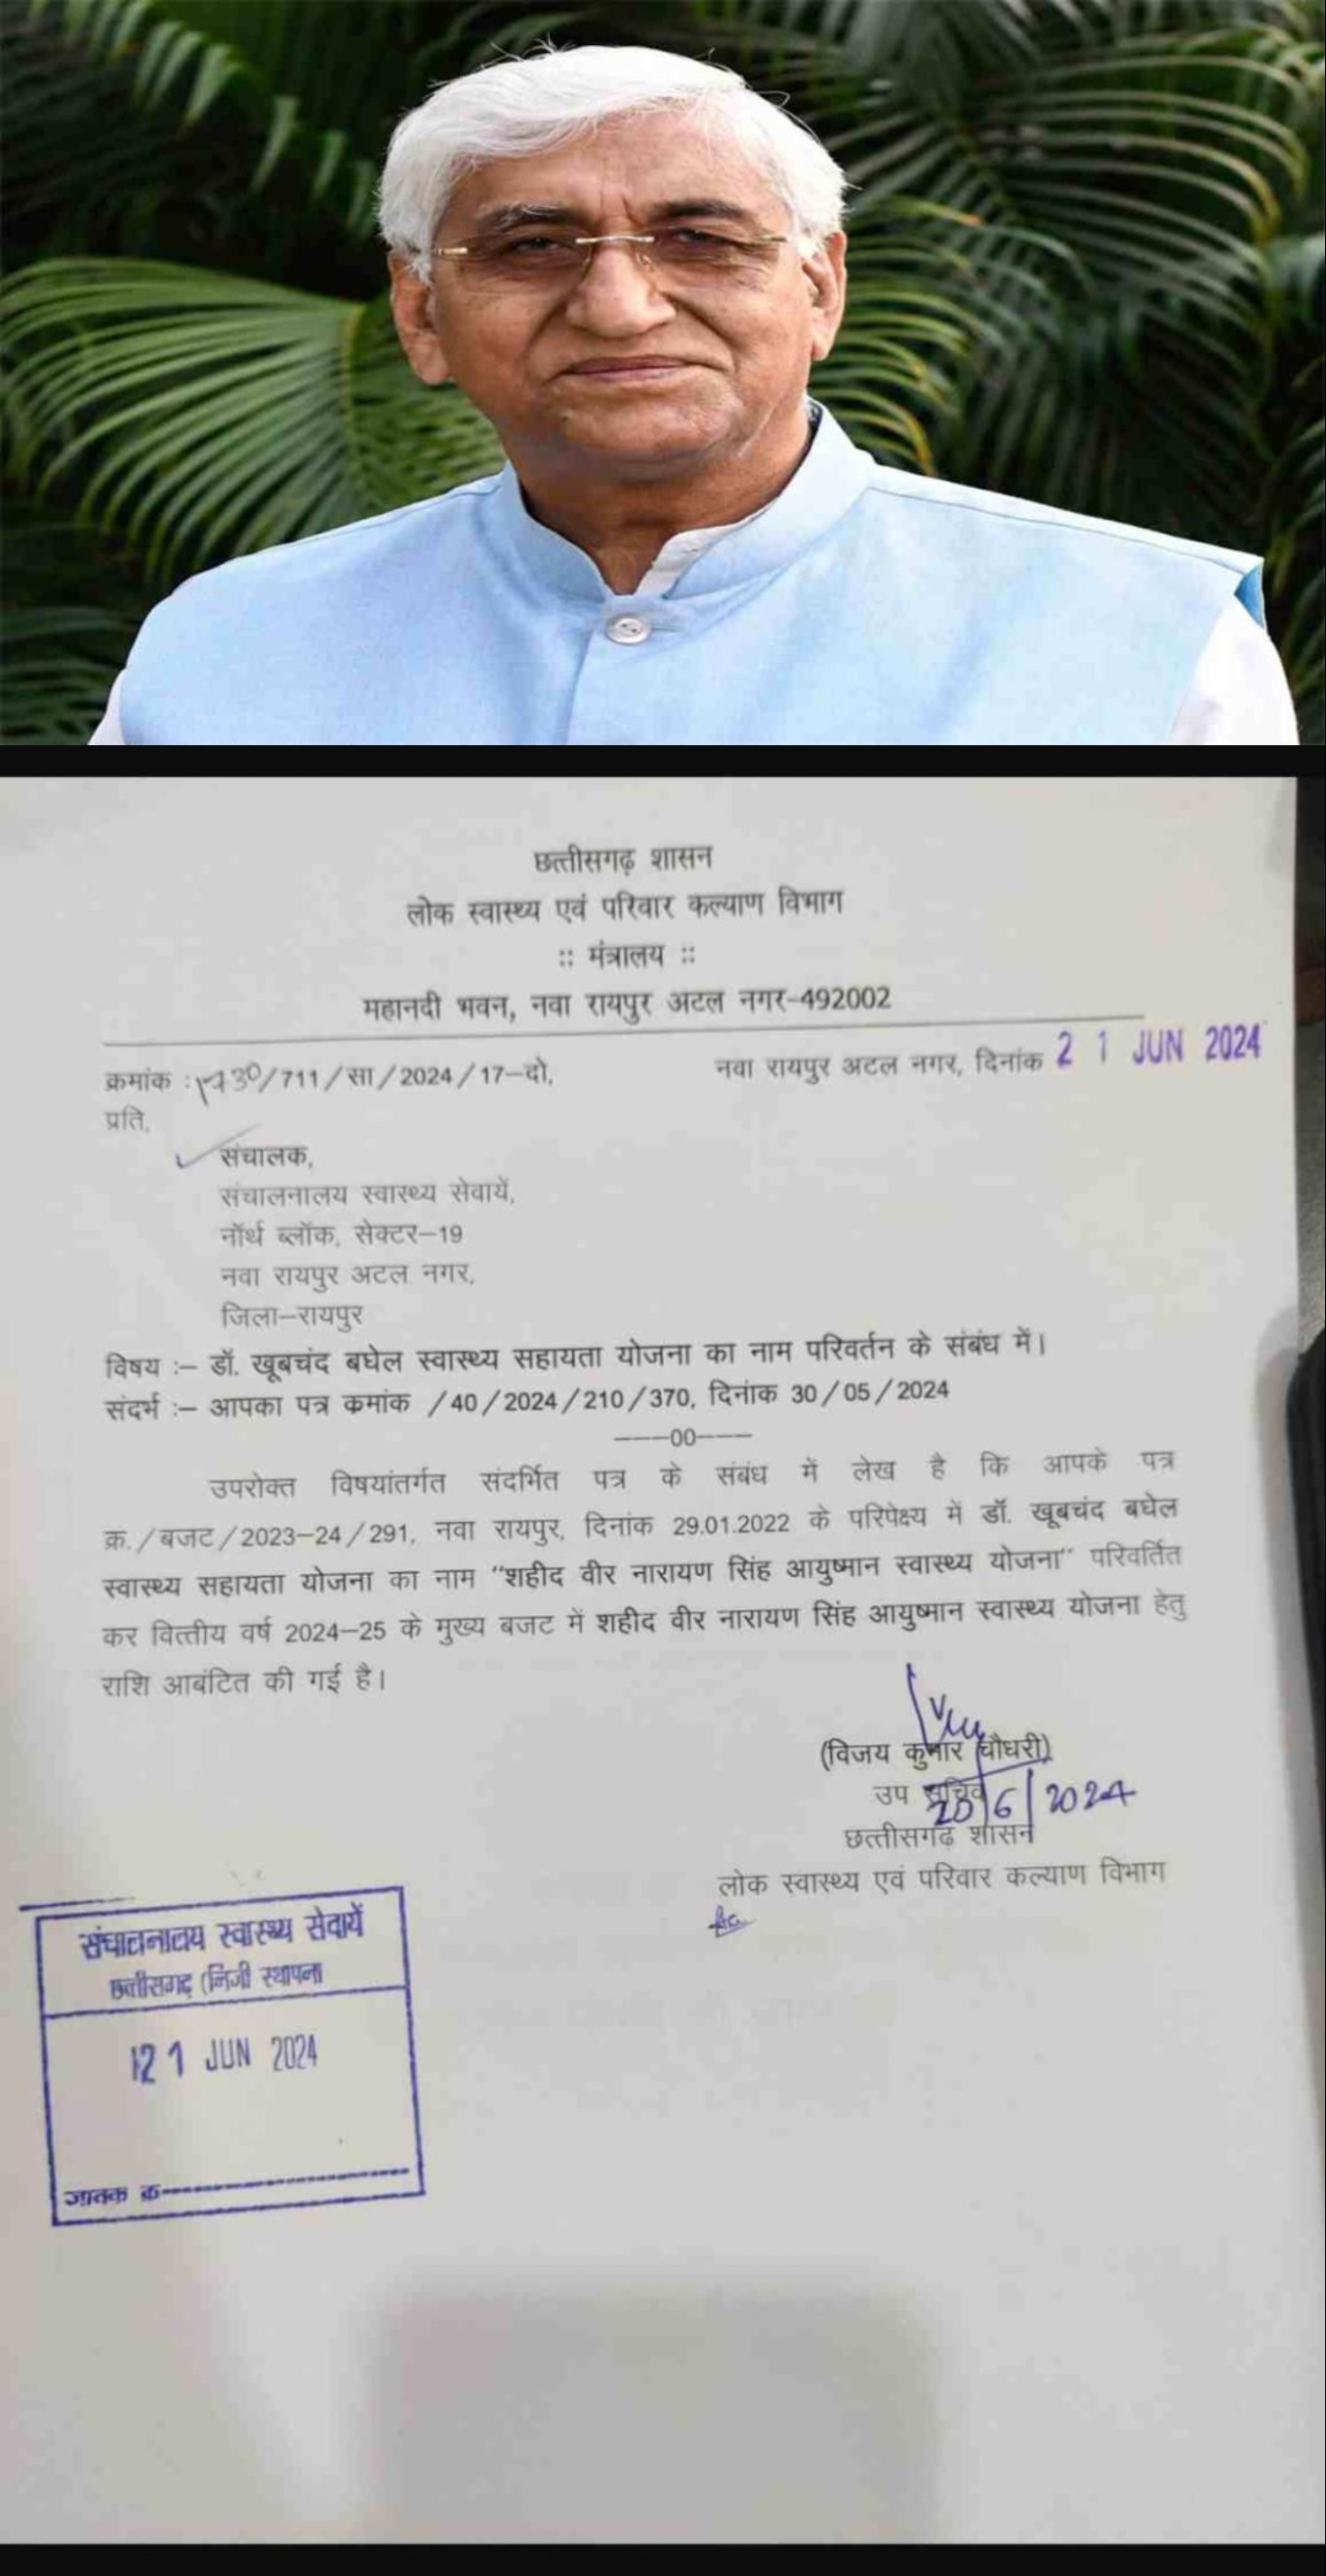 छत्तीसगढ़ शासन
लोक स्वास्थ्य एवं परिवार कल्याण विभाग
:: मंत्रालय ::
महानदी भवन, नवा रायपुर अटल नगर-492002
क्रमांक : /711/सा/2024/17-दो, नवा रायपुर अटल नगर, दिनांक 21 JUN 2024
प्रति,
संचालक,
संचालनालय स्वास्थ्य सेवायें,
नॉर्थ ब्लॉक, सेक्टर-19
नवा रायपुर अटल नगर,
जिला-रायपुर
विषय :- डॉ. खूबचंद बघेल स्वास्थ्य सहायता योजना का नाम परिवर्तन के संबंध में।
संदर्भ :- आपका पत्र कमांक /40/2024/210/370, दिनांक 30/05/2024
---00---
उपरोक्त विषयांतर्गत संदर्भित पत्र के संबंध में लेख है कि आपके पत्र
क्र./बजट/2023-24/291, नवा रायपुर, दिनांक 29.01.2022 के परिपेक्ष्य में डॉ. खूबचंद बघेल
स्वास्थ्य सहायता योजना का नाम "शहीद वीर नारायण सिंह आयुष्मान स्वास्थ्य योजना" परिवर्तित
कर वित्तीय वर्ष 2024-25 के मुख्य बजट में शहीद वीर नारायण सिंह आयुष्मान स्वास्थ्य योजना हेतु
राशि आबंटित की गई है।
(विजय कुमार चौधरी)
उप सचिव
20/6/2024
छत्तीसगढ़ शासन
लोक स्वास्थ्य एवं परिवार कल्याण विभाग
संचालनालय स्वास्थ्य सेवायें
छत्तीसगढ़ (निजी स्थापना
21 JUN 2024
जावक क्र